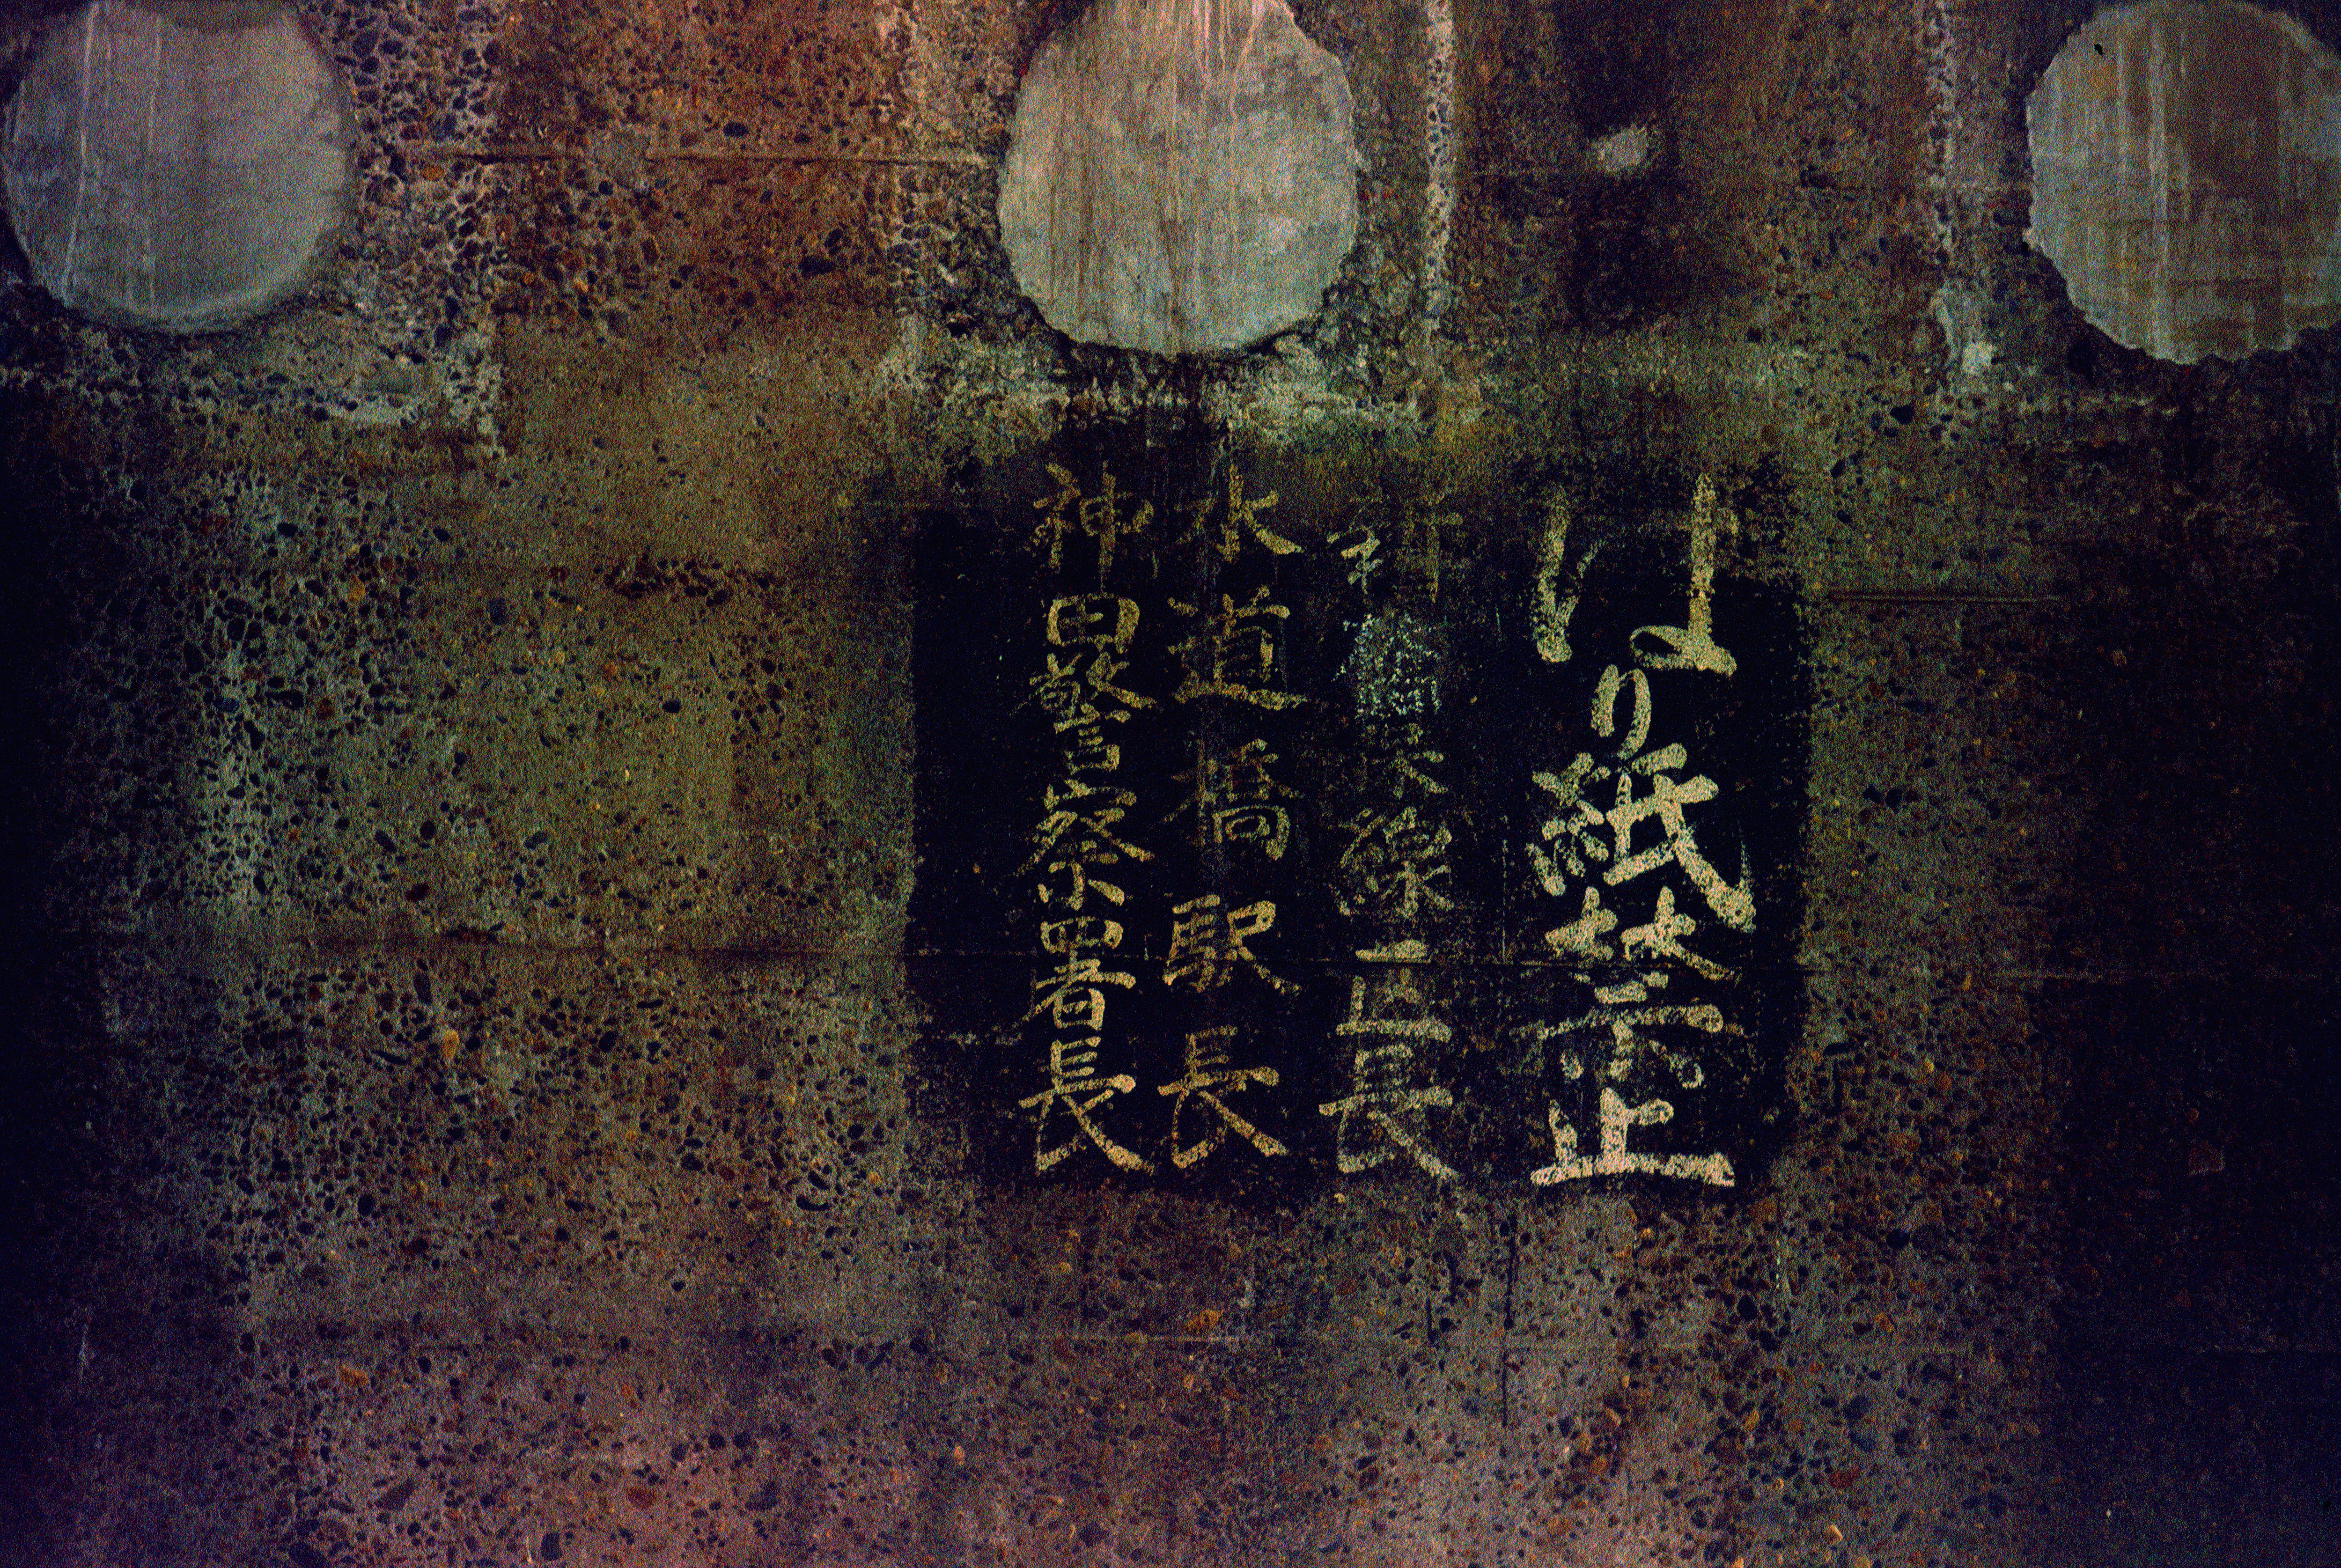 はり紙禁止
保線区長
水道橋駅長
神田警察署長